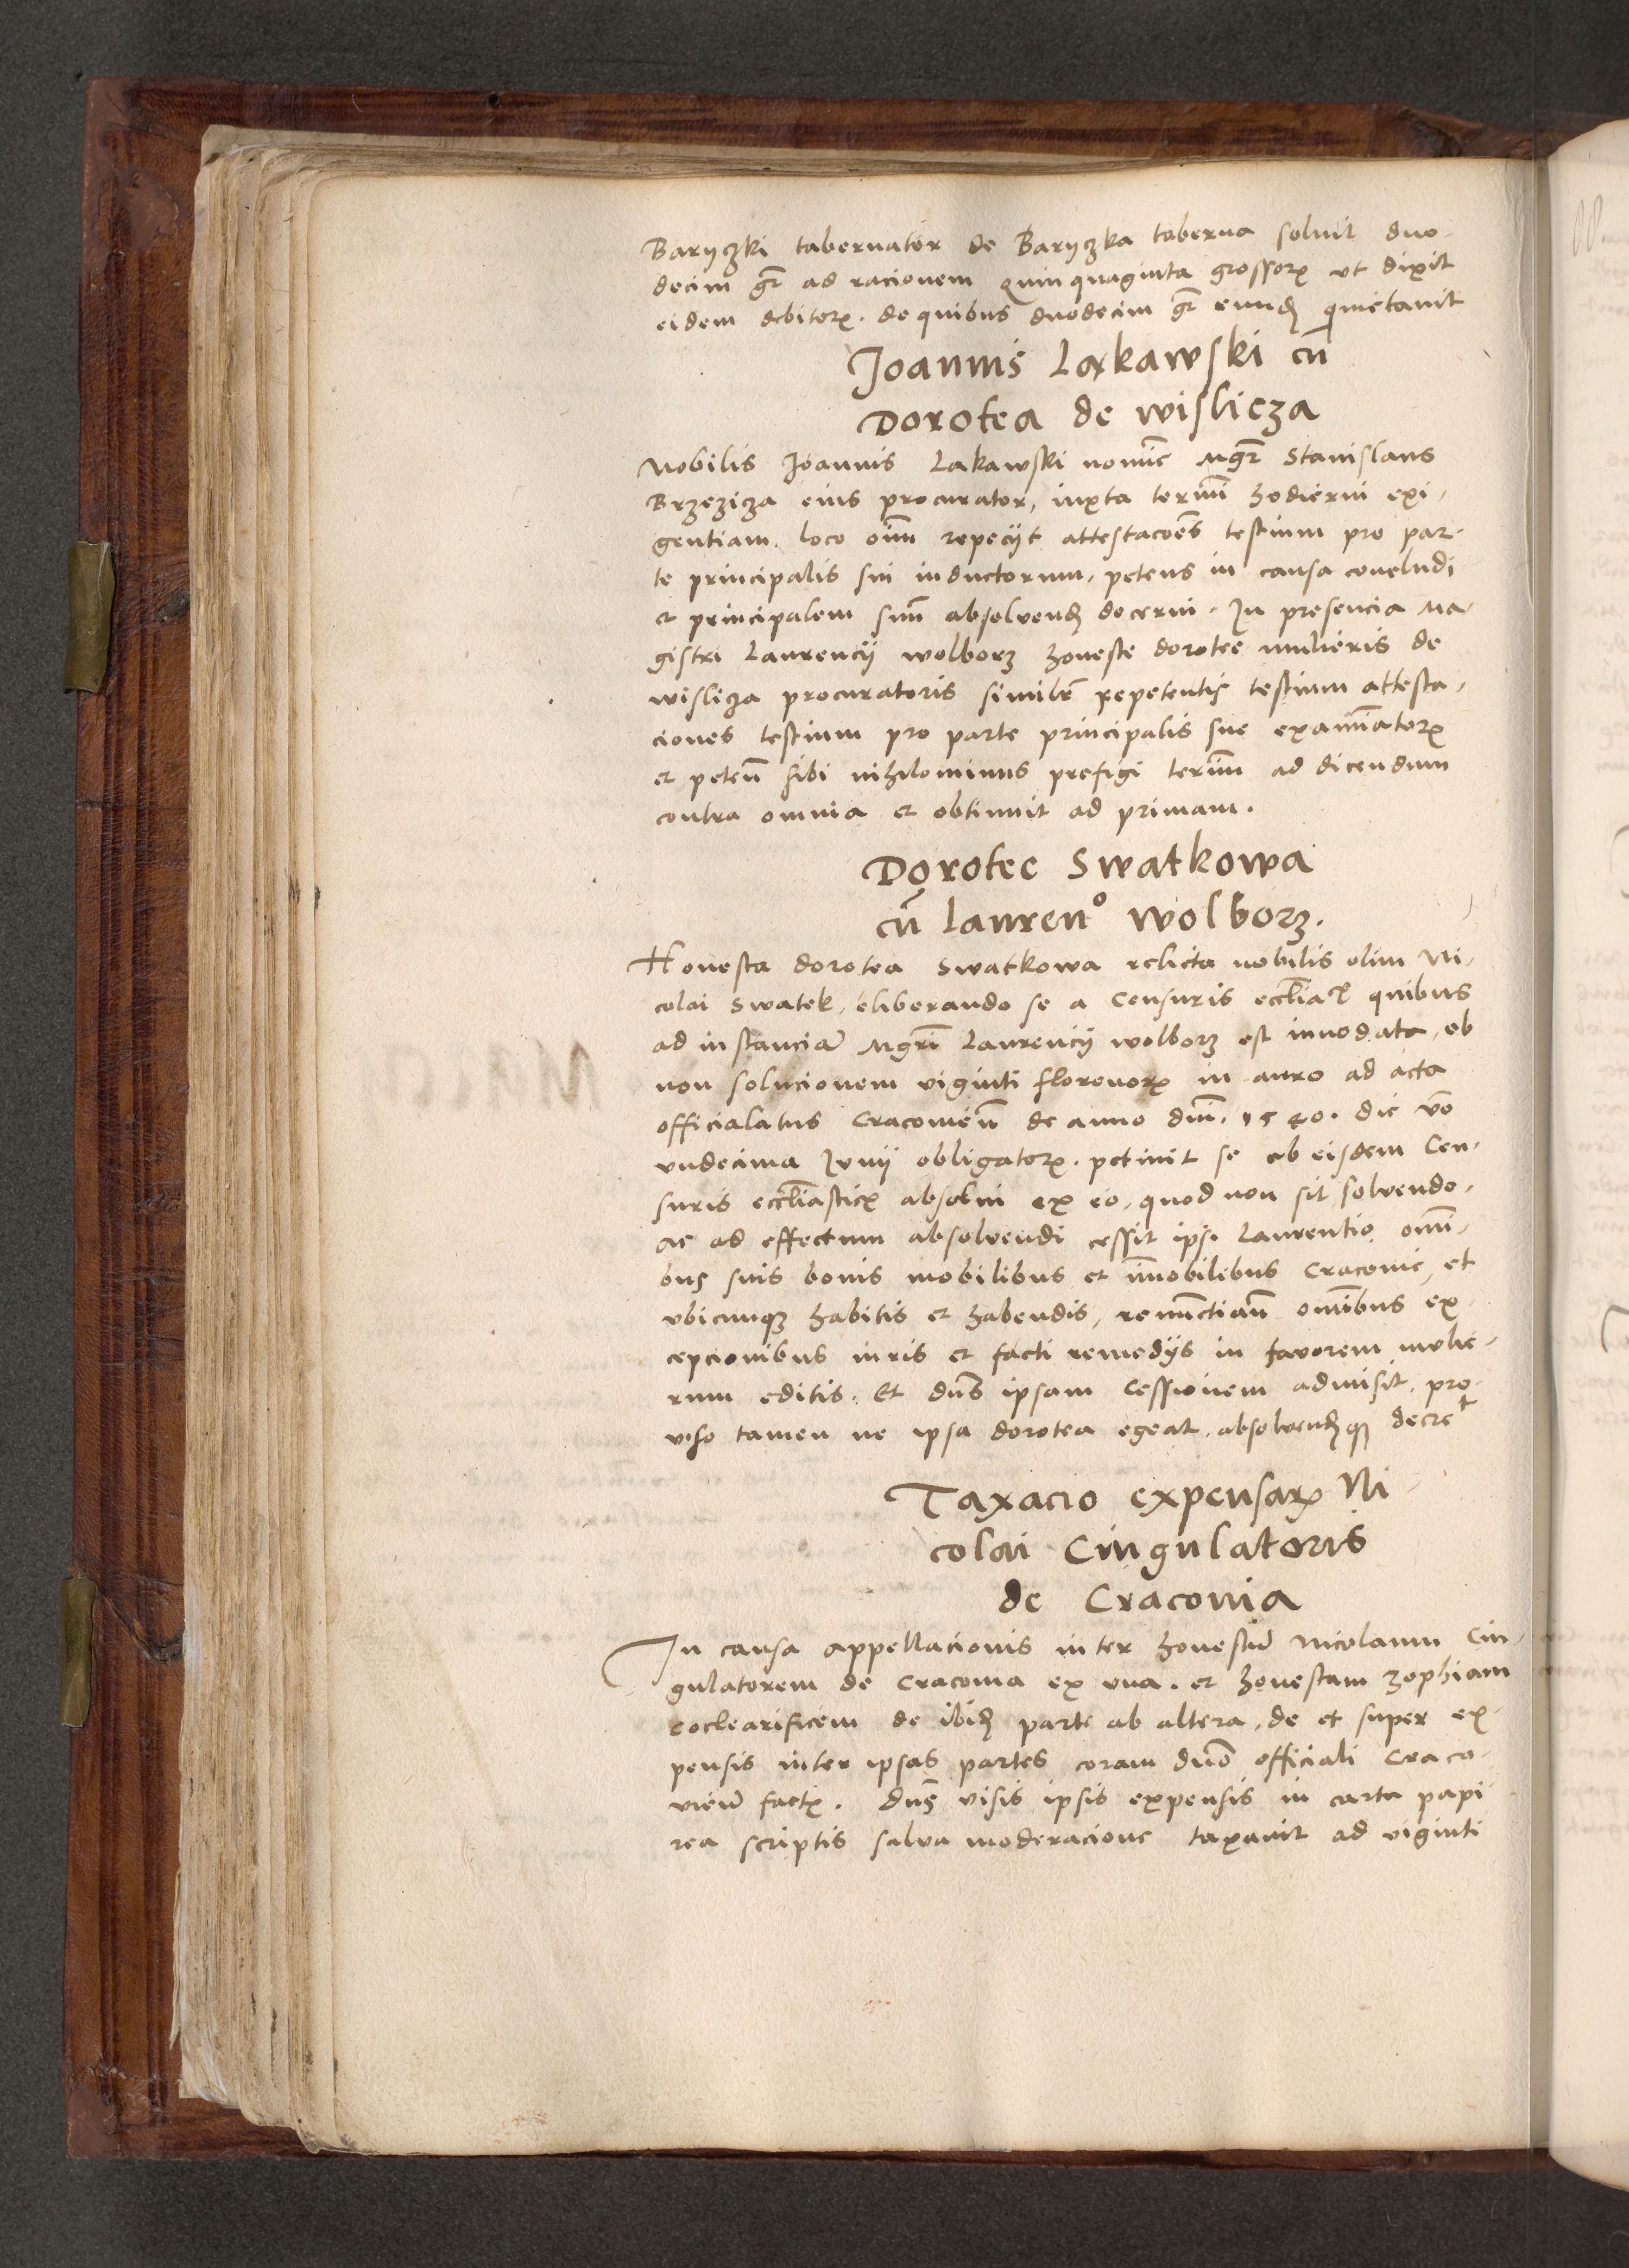 Baryczki tabernator de Baryczka taberna soluit duo-
decim gr̄ ad racionem quinquaginta grossorꝝ vt dixit
eidem debitorꝝ. de quibus duodecim gr̄ eundꝫ quietauit
Joannis Ląkawski cū
Dorotea de wislicza
Nobilis Joannis Ląkawski nomīe Mgr̄ Stanislaus
Brzezicza eius procurator, iuxta termī hodierni exi-
gentiam. loco oīm repeciit attestacoēs testium pro par-
te principalis sui inductorum, petens in causa concludi
et principalem suū absoluendꝫ decerni. In presencia Ma-
gistri Laurencij wolborz honeste dorotee mulieris de
wislicza procuratoris similr̄ repetentis testium attesta-
ciones testium pro parte principalis sue examīatorꝝ
et peteñ sibi nihilominus prefigi termī ad dicendum
contra omnia et obtinuit ad primam.
Dorotee Swatkowa
cū laurenᵒ wolborz.
Honesta dorotea Swatkowa relicta nobilis olim Ni-
colai Swatek, eliberando se a Censuris eccl̄iar̄ quibus
ad instanciā Mgrī Laurencij wolborz est innodata, ob
non solucionem viginti florenorꝝ in auro ad acta
officialatus Cracouieñ de anno dnī. 1540. die v̄o
vndecima Junij obligatorꝝ. petiuit se ab eisdem Cen-
suris eccl̄iasticꝭ absolui ex eo, quod non sit soluendo.
ac ad effectum absoluendi cessit ipsi Laurentio omī-
bus suis bonis mobilibus et im̄obilibus Cracouie, et
vbicunqꝫ habitis et habendis, renunctiañ omībus ex-
cepcionibus iuris et facti remedijs in fauorem mulie-
rum editis. Et dn̄s ipsam Cessionem admisit. pro-
viso tamen ne ipsa dorotea egeat. absoluendꝫqꝫ decreᵗ
Taxacio expensarꝝ Ni-
colai Cingulatoris
de Cracouia
In causa appellacionis inter honestū Nicolaum Cin-
gulatorem de Cracouia ex vna. et honestam Zophiam
coclearificem de ibidꝫ parte ab altera, de et super ex-
pensis inter ipsas partes coram dn̄o officiali Craco-
uieñ factꝭ. Dn̄s visis ipsis expensis in carta papi-
rea scriptis salua moderacione taxauit ad viginti